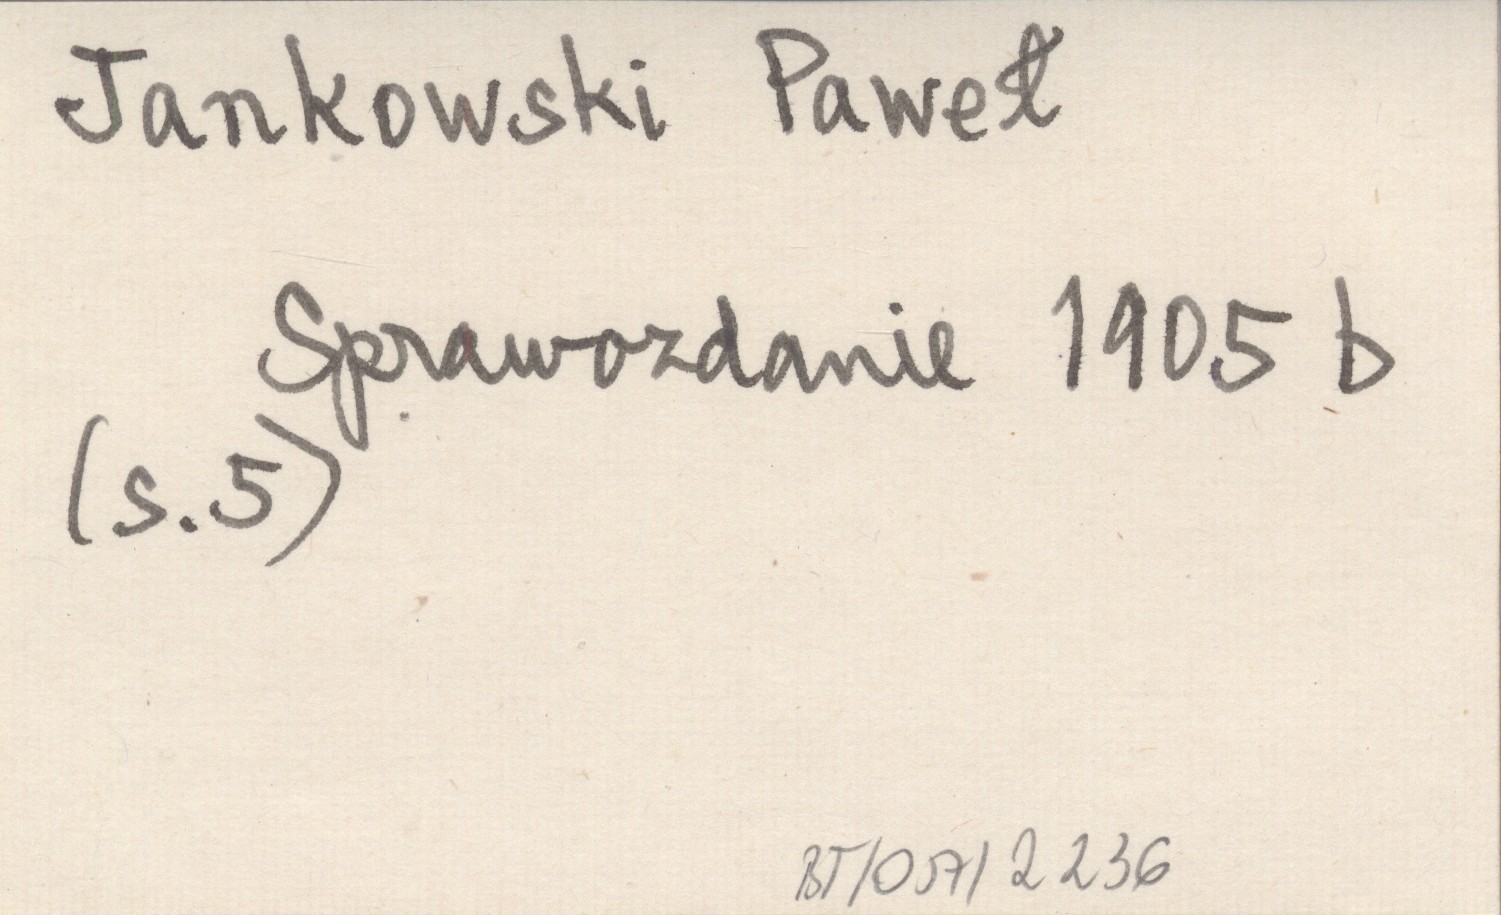 Jankowski Paweł
Sprawozdanie 1905 b
(s.5)
BT/057/2236